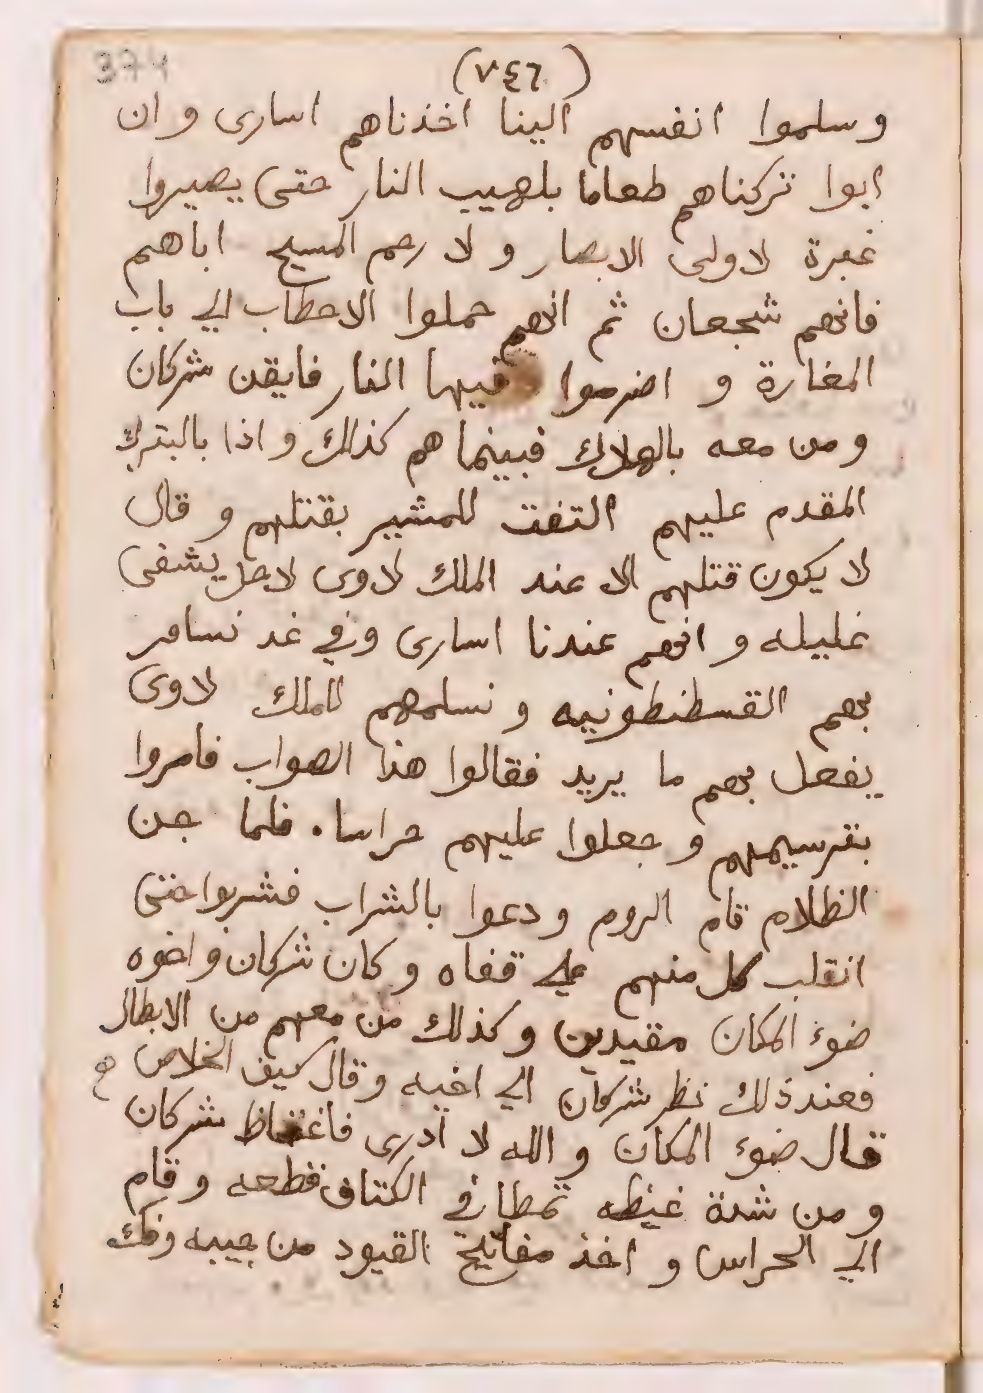 374
(٧٤٦)
وسلموا انفسهم الينا اخذناهم اسارى و ان
ابوا تركناهم طعاما بلهيب النار حتى يصيروا
عبرة لاولى الابصار و لا رحم المسيح اباهم
فانهم شجعان ثم انهم حملوا الاحطاب الي باب
المغارة و اضرموا فيها النار فايقن شركان
و من معه بالهلاك فبينما هم كذلك و اذا بالبترك
المقدم عليهم التفت للمشير بقتلهم و قال
لا يكون قتلهم الا عند الملك لاوى لاجل يشفى
غليله و انهم عندنا اسارى وفي غد نسافر
بهم القسطنطونيه و نسلمهم للملك لاوى
يفعل بهم ما يريد فقالوا هذا الصواب فامروا
بترسيمهم و جعلوا عليهم حراسا . فلما جن
الظلام قام الروم و دعوا بالشراب فشربوا حتى
انقلب كل منهم علي قفاه و كان شركان و اخوه
ضوء المكان مقيدين و كذلك من معهم من الابطال
فعند ذلك نظر شركان الي اخيه و قال كيف الخلاص
قال ضوء المكان و الله لا ادرى فاغتاظ شركان
و من شدة غيظه تمطا في الكتاف فقطعه و قام
الي الحراس و اخذ مفاتيح القيود من جيبه وفك